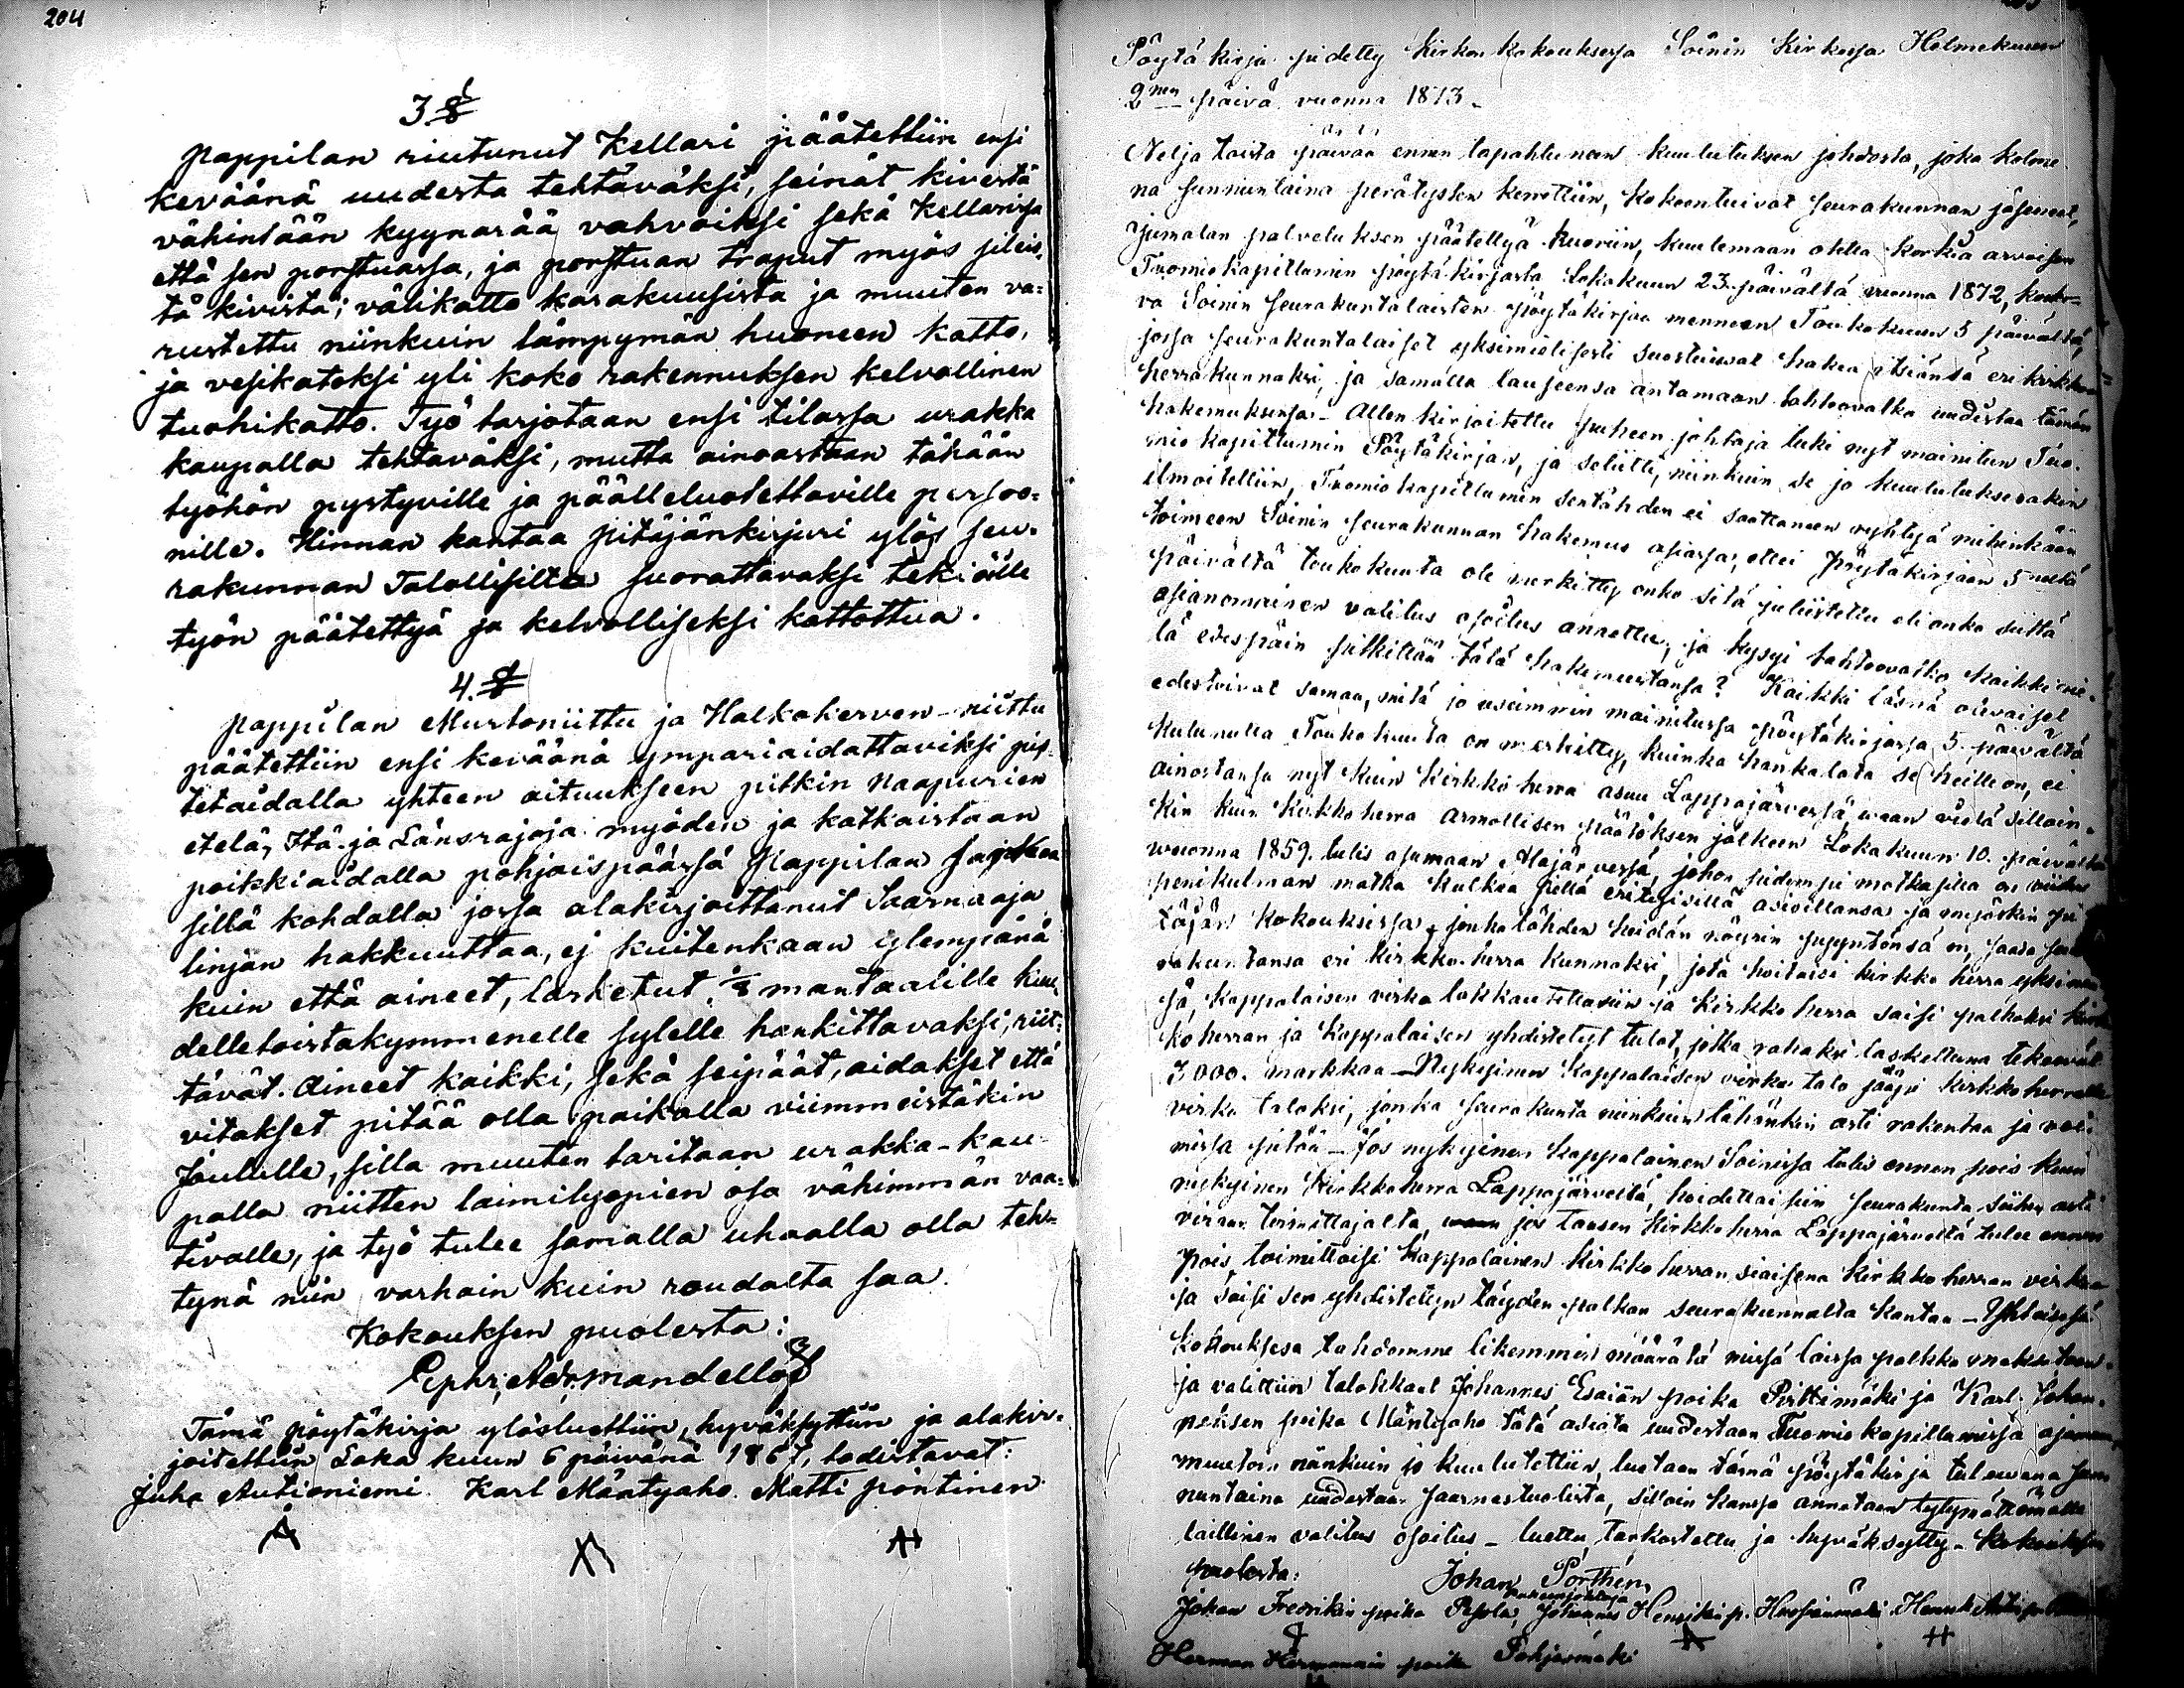 204
3 §
pappilan riutunut Kellari päätettiin ensi
keväänä uudesta tehtäväksi, seinät kivestä
vähintään kyynärää vahvoiksi sekä Kellarissa
että sen porstuassa, ja porstuan traput myös sileis-
tä kivistä; välikatto karakuusista ja muuten va=
rustettu niinkuin lämpymän huoneen katto,
ja vesikatoksi yli koko rakennuksen kelvollinen
tuohikatto. Työ tarjotaan ensi tilassa urakka
kaupalla tehtäväksi, mutta ainoastaan tähään
työhön pystyville ja päälleluotettaville persoo=
nille. Hinnan kantaa pitäjänkirjuri ylös seu-
rakunnan Talollisilta suorattavaksi tekiälle
työn päätettyä ja kelvolliseksi kattottua.
4. §
pappilan Murtoniittu ja Halkokerven-niittu
päätettiin ensi keväänä ympäriaidattaviksi pis-
tetaidalla yhteen aituukseen pitkin Naapurien
etelä, Itä- ja Länsrajoja myöden ja katkaistaan
poikkiaidalla pohjaispäässä Pappilan
sillä kohdalla jossa alakirjoittanut Saarnaaja
linjan hakkuuttaa, ej kuitenkaan ylempänä
kuin että aineet, lasketut 1/8 mantaalille kuu-
delletoistakymmenelle sylelle hankittavaksi, riit-
tävät. Aineet kaikki, sekä seipäät, aidakset että
vitakset pitää olla paikalla viimmeistäkin
Joululle, sillä muuten taritaan urakka-kau-
palla niitten laimilyöpien osa vähimmän vaa-
tivalle, ja työ tulee samalla uhaalla olla teh-
tynä niin varhain kuin roudalta saa.
Kokouksen puolesta:
Ephr. Ad. Mandellöf
Tämä pöytäkirja ylösluettiin, hyväksyttiin ja alakir-
joitettiin Loka kuun 6 päivänä 1867, todistavat:
Juha Autioniemi. Karl Mäntyaho. Matti pöntinen
Pöytäkirja pidetty Kirkon kokouksessa Soinin Kirkossa Helmekuun
2nen päivä vuonna 1873.
Neljätoista päivää ennen tapahtuneen kuulutuksen johdosta, joka kolme
na sunnuntaina perätysten kerrottiin, Kokoontuivat seurakunnan jäsenet,
Jumalan palveluksen päätettyä Kuoriin, kuulemaan otetta korkia arvoisen
Tuomiokapittumin pöytäkirjasta Lokakuun 23. päivältä vuonna 1872, koske-
va Soinin seurakuntalaisten pöytäkirjaa menneen Toukokuun 5 päivältä,
jossa seurakuntalaiset yksimielisesti suostuiwat hakea itsiänsä eri kirkko
herrakunnaksi, ja samalla lauseensa antamaan tahtoovatko uudistaa tämän
hakemuksensa - Allen kirjoitettu puheen johtaja luki nyt mainitun Tuo-
mio kapittumin Pöytäkirjan, ja selitti, niinkuin se jo kuulutuksessakin
ilmoitettiin, Tuomiokapittumin sentähden ei saattaneen ryhtyä mihenkään
toimeen Soinin seurakunnan hakemus asiassa, ettei pöytäkirjaan 5
päivältä toukokuuta ole merkitty onko sitä julistettu eli onko siitä
asianomainen valitus osoitus annettu, ja kysyi tahtoovatko kaikki vie-
lä edespäin pitkittää tätä hakemustansa? Kaikki läsnä olevaiset
edestoivat samaa, mitä jo useimmin mainitussa pöytäkirjassa 5. päivältä
kulunutta Toukokuuta on merkitty, kuinka hankalata se heille on, ei
ainostansa nyt kuin Kirkko herra asuu Lappajärvessä, waan vielä silloin-
kin kuin Kirkko herra armollisen päätöksen jälkeen Lokakuun 10. päivältä
wuonna 1859. tulis asumaan Alajärvessä, johon pidempi matkasilla on
penikulman matka kulkea heillä erityisillä asioillansa ja myöskin pi-
täjän kokouksissa, jonka tähden heidän nöyrin pyyntönsä on, saada seu-
rakuntansa eri kirkko-herra kunnaksi, jota hoitaisi kirkko herra yksinän-
sä, Kappalaisen virka lakkautettasiin ja Kirkko herra saisi palkaksi Kirk-
koherran ja kappalaisen yhdistetyt tulot, jotka rahaksi laskettuna tekewät
3000. markkaa - Nykyinen Kappalaisen virka talo jääpi kirkkoherralle
virka taloksi, jonka seurakunta niinkuin tähänkin asti rakentaa ja voi-
missa pitää - Jos nykyinen kappalainen Soinissa tulis ennen pois kuin
nykyinen Kirkkoherra Lappajärveltä, hoidettaisiin seurakunta siihen asti
viran toimittajalta, jos taasen kirkko herra Lappajärveltä tulee ennen
pois, toimittaisi kappalainen kirkko herran siaisena kirkko herran virkaa
ja saisi sen yhdistetyn täyden palkan seurakunnalta kantaa - Yhtaisessä
kokouksesa tahdomme likemmin määrätä missä laissa palkka maksetaan
ja valittiin talokkaat Johannes Esaiän poika Pirttimäki ja Karl Johan-
neksen poika Mäntyaho tätä asiata uudestaan Tuomio kapittumissa ajamaan
muutoin niinkuin jo kuulutettiin, luetaan tämä pöytäkirja tulevana sun-
nuntaina uudestaan saarnastuolista, silloin kanssa annetaan tyytymättömälle
laillinen valitus osoitus - luettu, tarkastettu ja hyväksytty. Kokouksen
puolesta:
Johan Porthén
puheenjohtaja
Johan Fredrikin poika Pesola, Johannes Henrikin p. Hassianmäki Henrik
Herman Hermannin poika Pohjosmäki